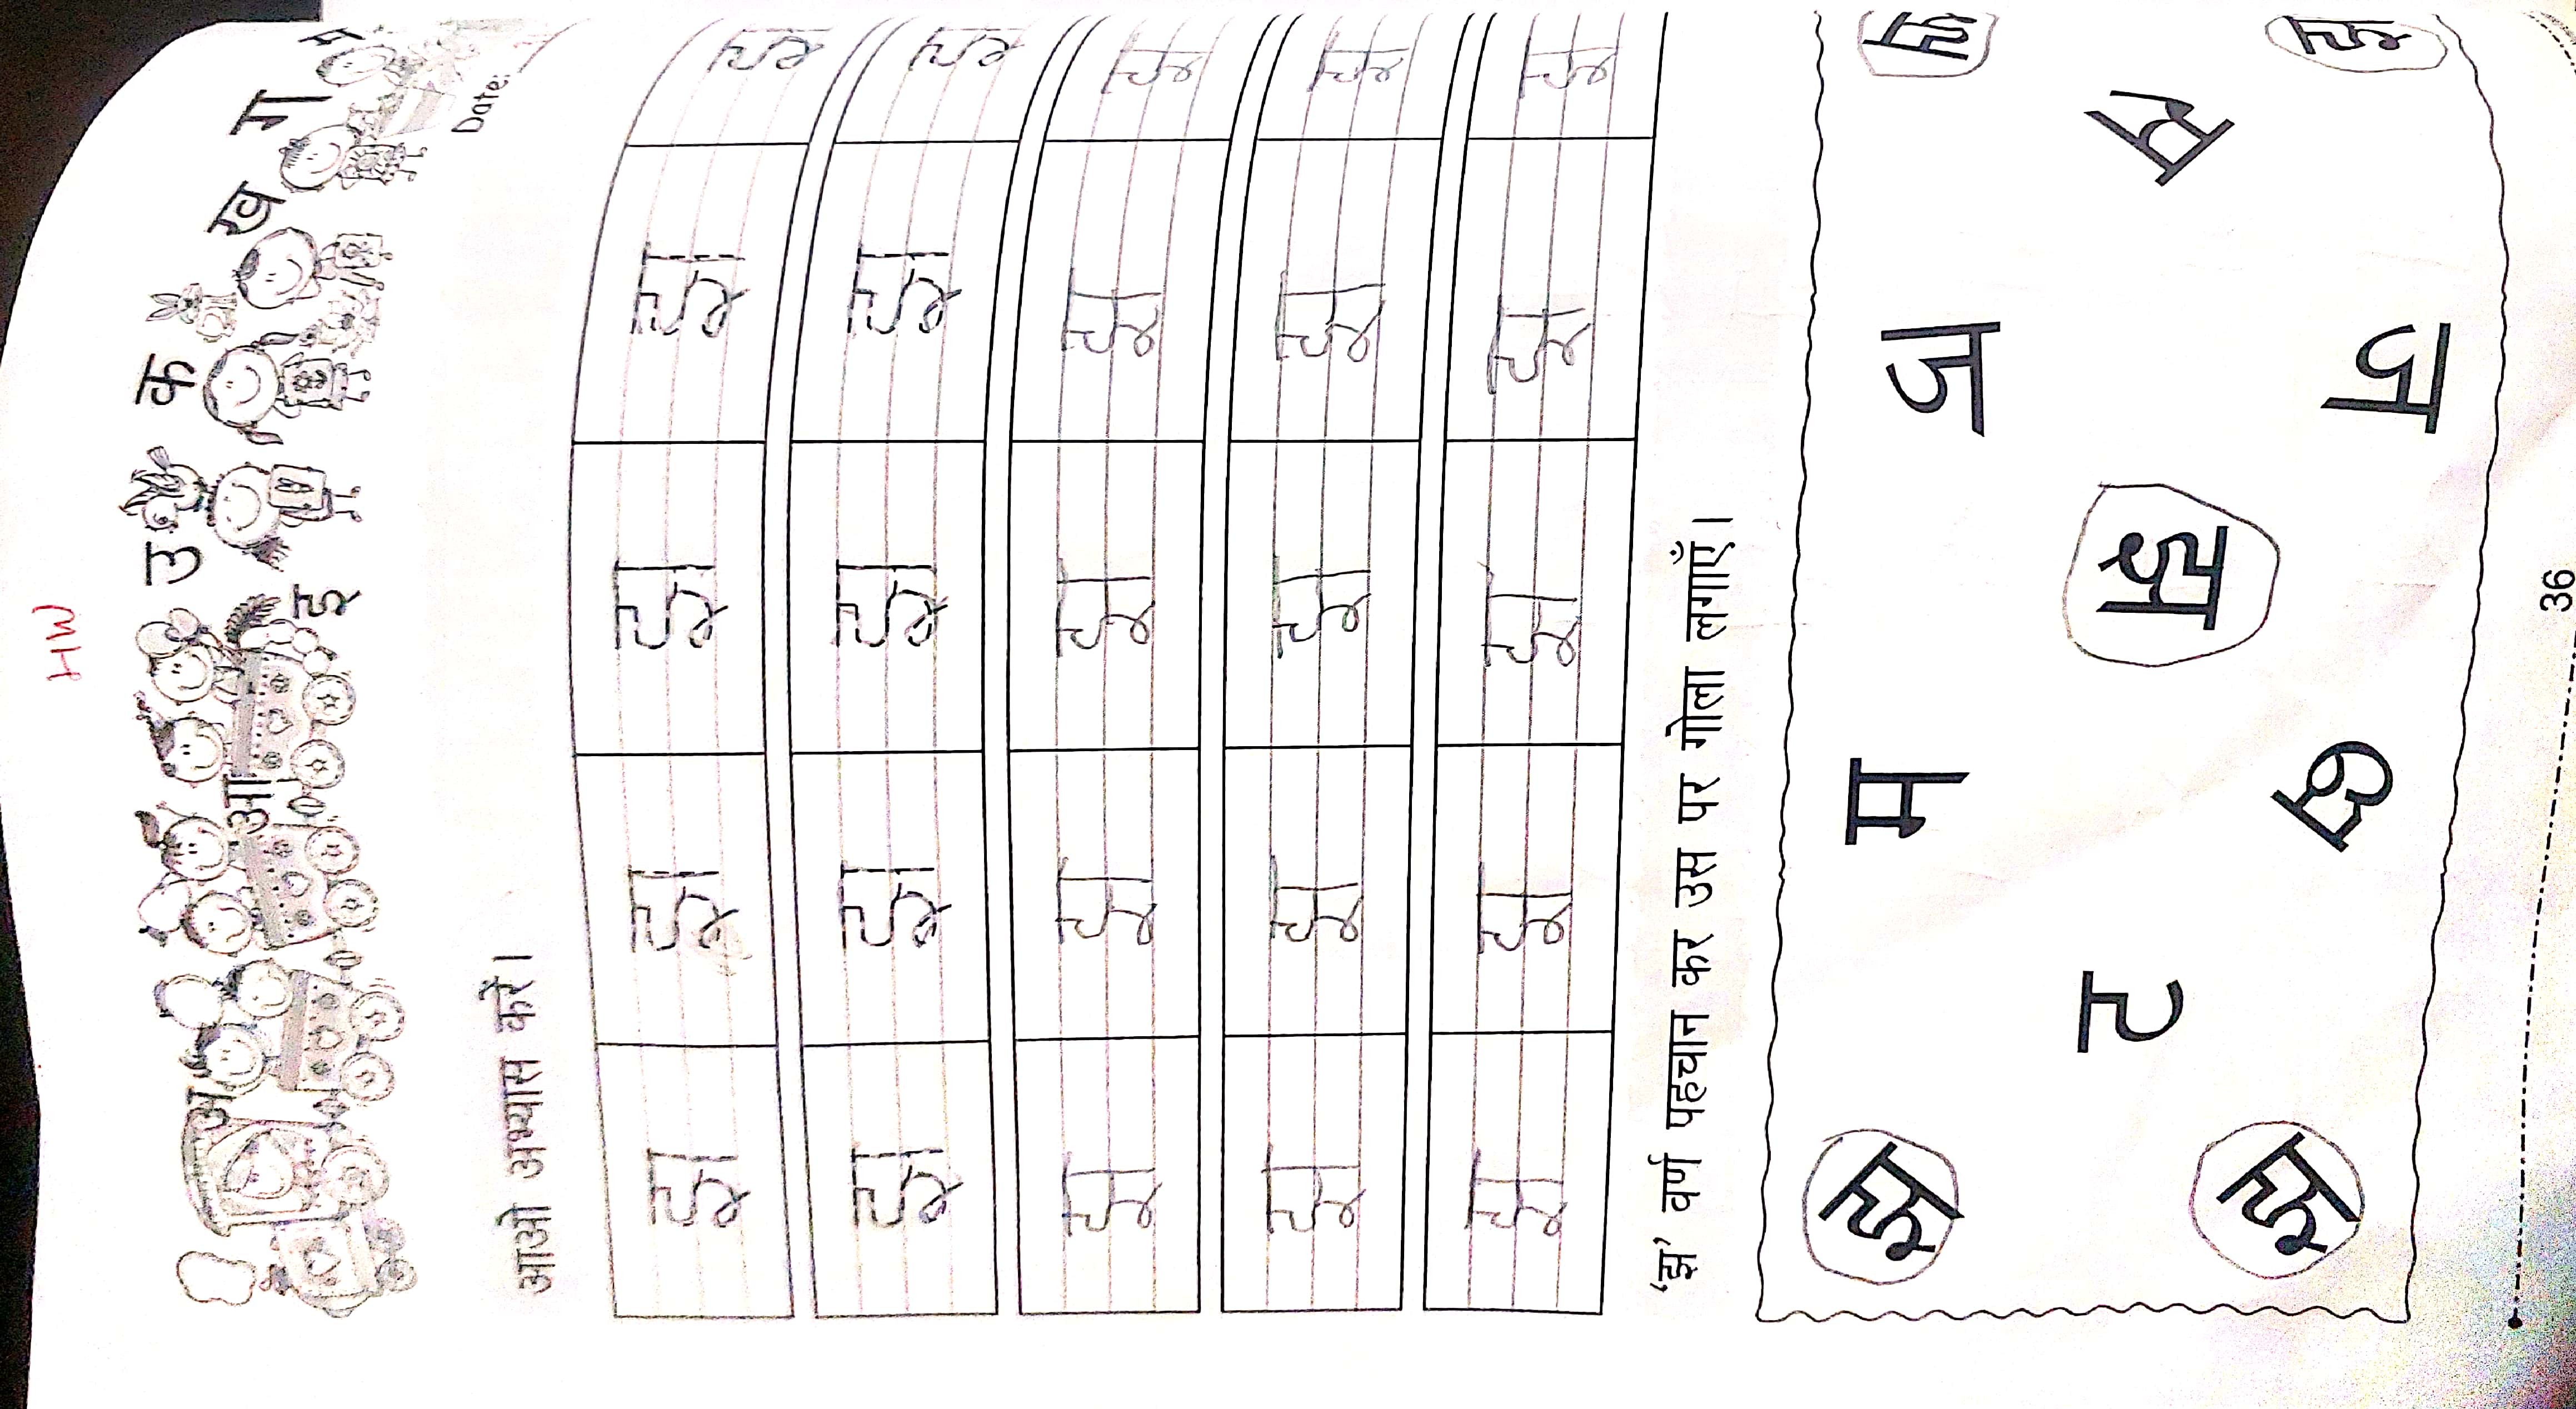 HW
अ आ इ उ क ख ग
Date:
आओ अभ्यास करें।
झ झ झ झ झ
झ झ झ झ झ
झ झ झ झ झ
झ झ झ झ झ
झ झ झ झ झ
'झ' वर्ण पहचान कर उस पर गोला लगाएँ।
झ म ज झ
ट झ
झ छ ज झ
36